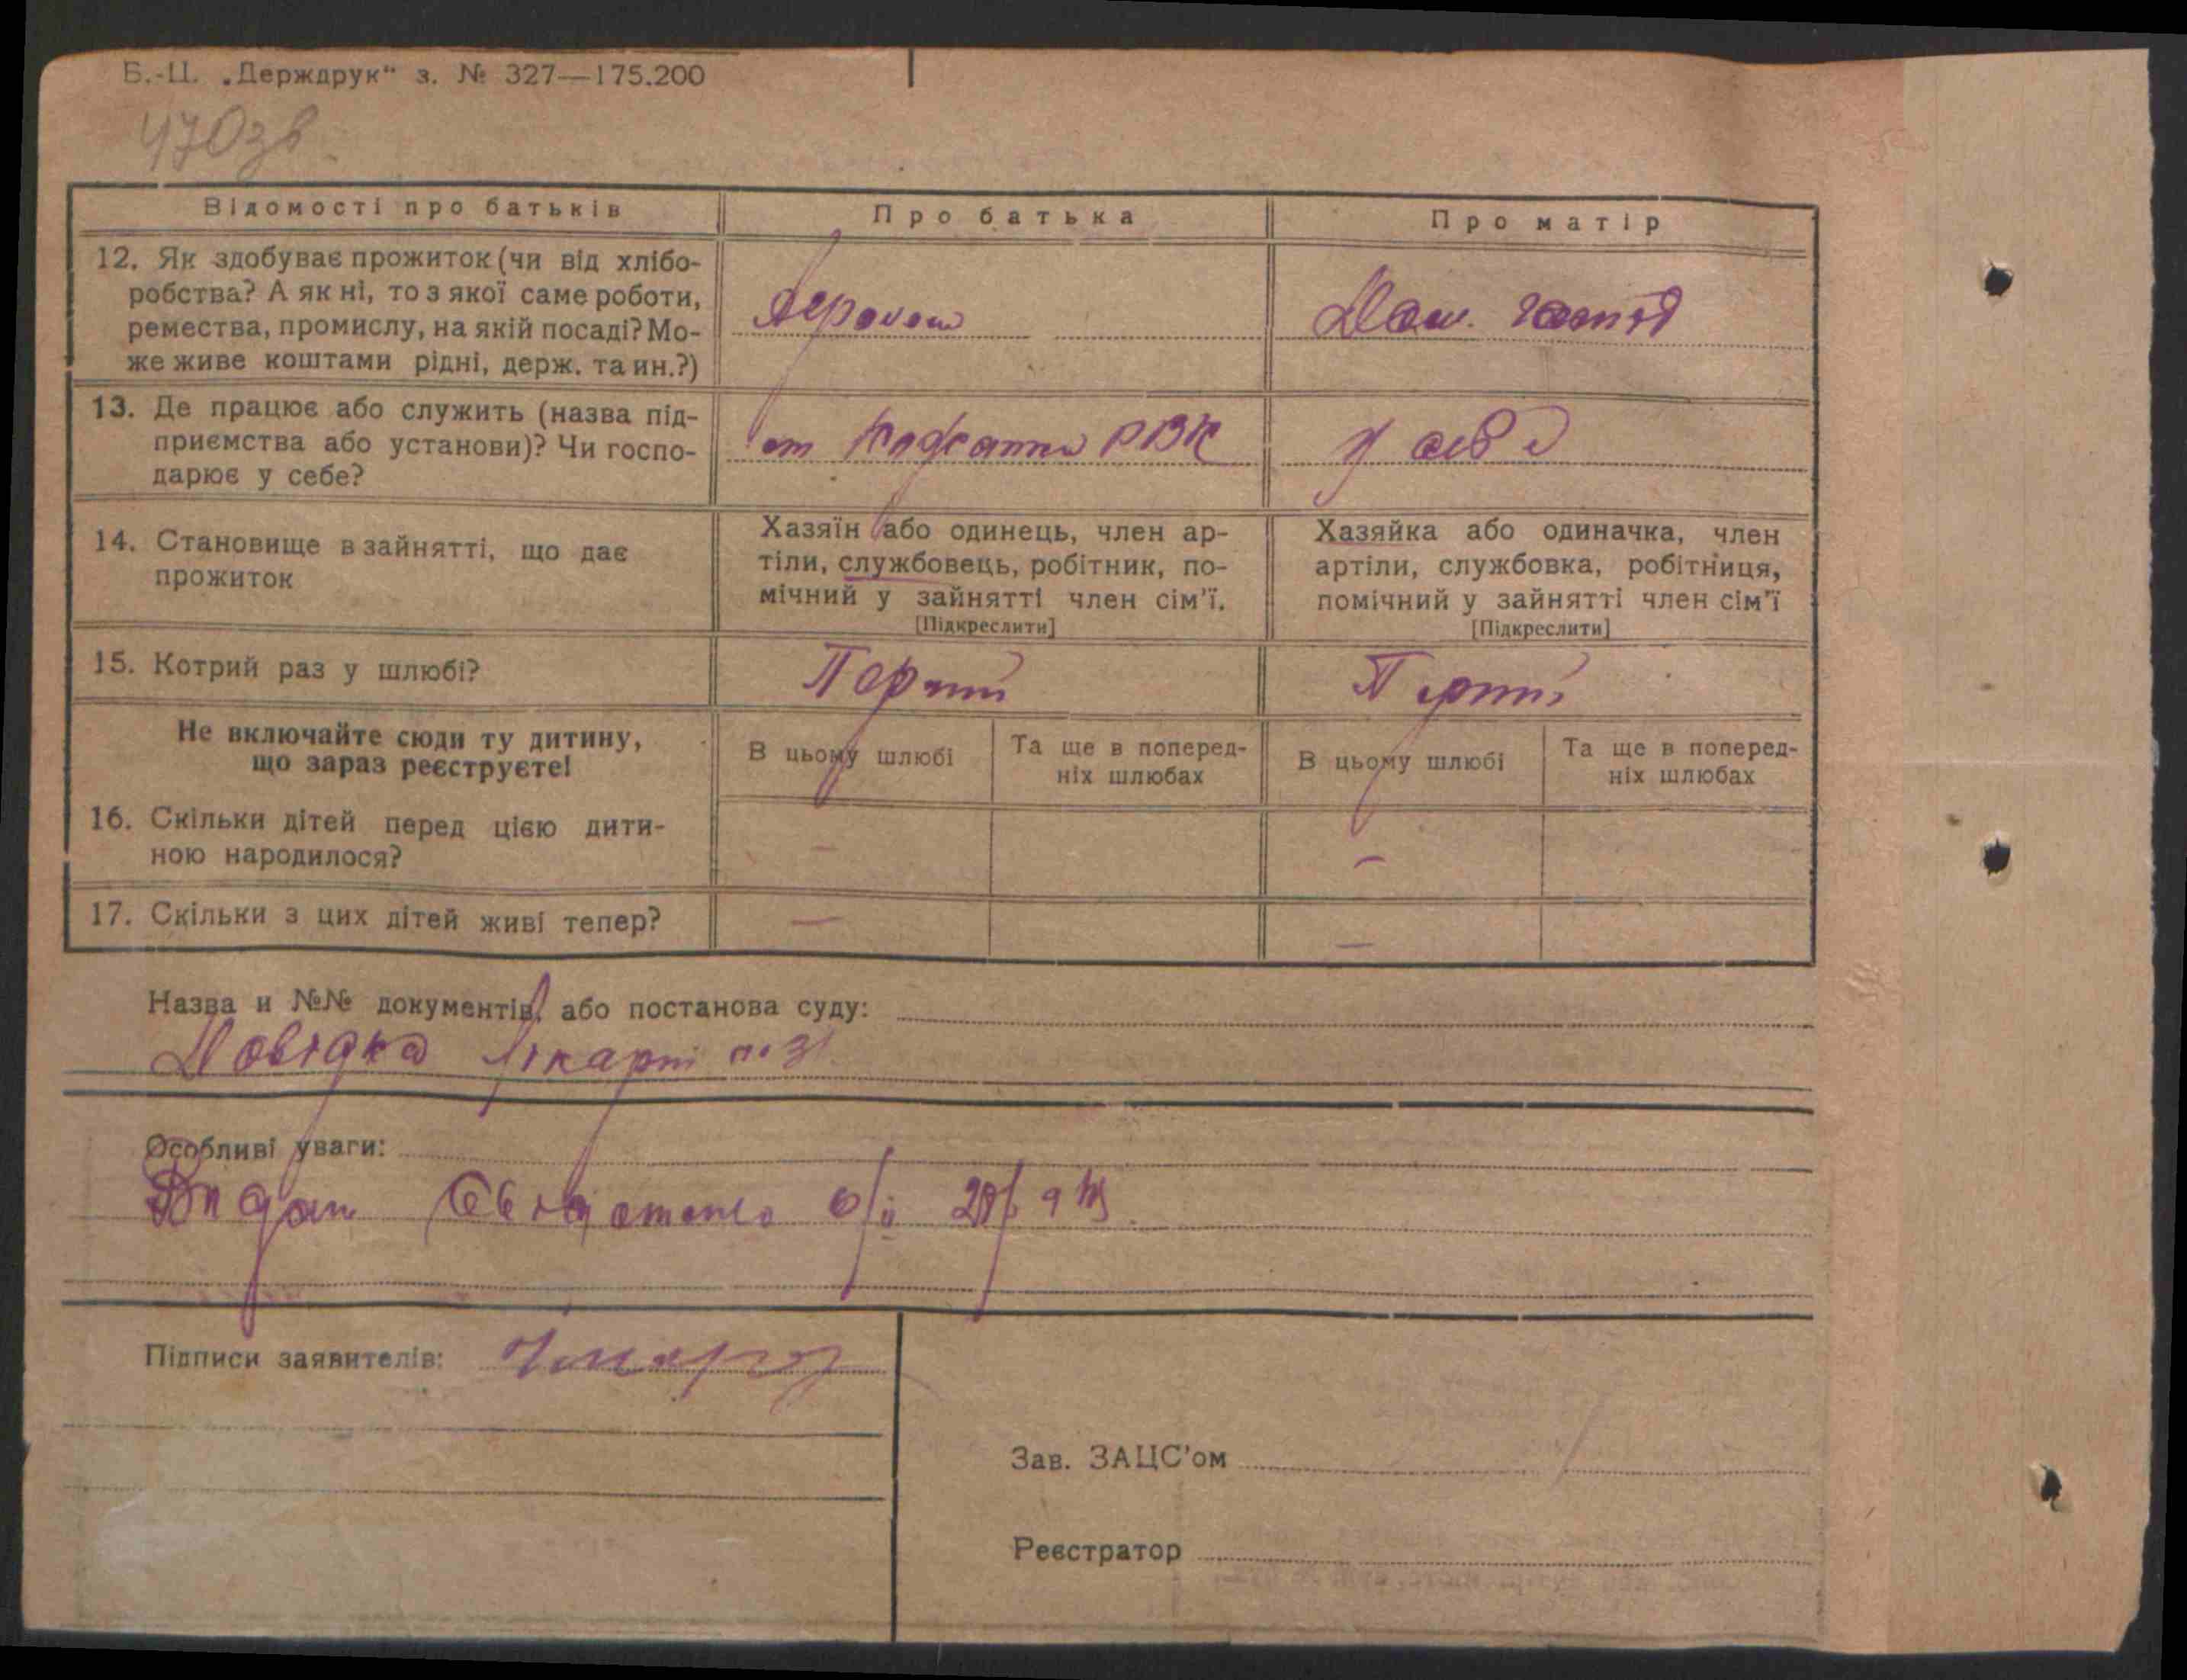 Б.-Ц. „Держдрук“ з. № 327—175.200
470зв
Відомості про батьків
Про батька
Про матір
12. Як здобуває прожиток (чи від хлібо-
робства? А як ні, то з якої саме роботи,
ремества, промислу, на якій посаді? Мо-
же живе коштами рідні, держ. та ин.?)
Агроном
Дом.
13. Де працює або служить (назва під-
приємства або установи)? Чи госпо-
дарює у себе?
РВК
У себе
14. Становище в зайнятті, що дає
прожиток
Хазяїн або одинець, член ар-
тіли, службовець, робітник, по-
мічний у зайнятті член сім'ї.
[Підкреслити]
Хазяйка або одиначка, член
артіли, службовка, робітниця,
помічний у зайнятті член сім'ї
[Підкреслити]
15. Котрий раз у шлюбі?
Перший
Перший
Не включайте сюди ту дитину,
що зараз реєструєте!
В цьому шлюбі
Та ще в поперед-
ніх шлюбах
В цьому шлюбі
Та ще в поперед-
ніх шлюбах
16. Скільки дітей перед цією дити-
ною народилося?
—
—
17. Скільки з цих дітей живі тепер?
—
—
Назва и №№ документів, або постанова суду:
Довідка лікарні
Особливі уваги:
Підписи заявителів:
Зав. ЗАЦС'ом
Реєстратор